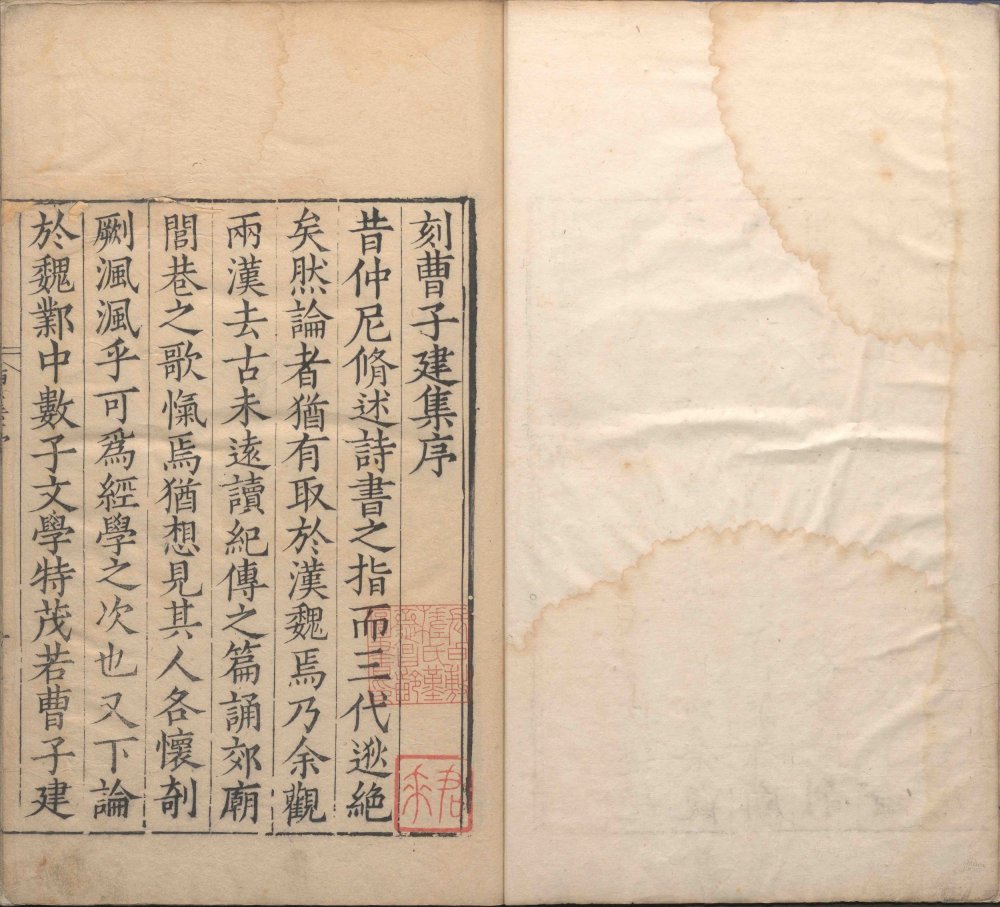 刻曹子建集序
昔仲尼脩述詩書之指而三代逖絶
矣然論者猶有取於漢魏焉乃余觀
兩漢去古未遠讀紀傳之篇誦郊廟
閭巷之歌愾焉猶想見其人各懷剞
劂渢渢乎可為經學之次也又下論
於魏鄴中數子文學特茂若曹子建